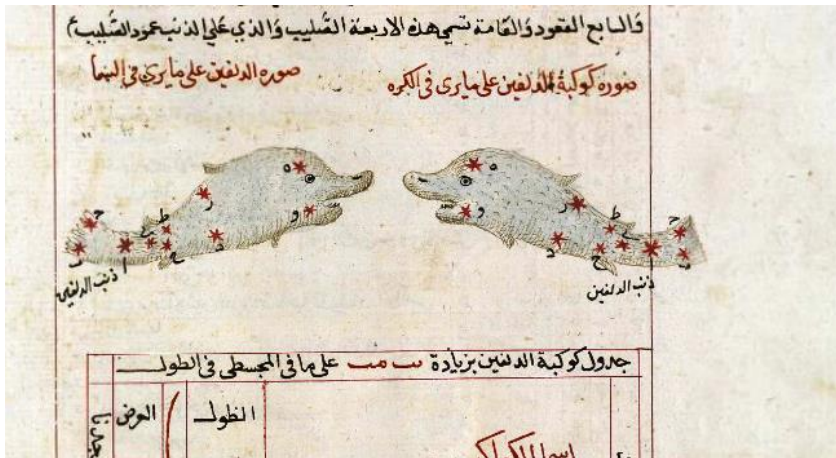 والسابع العقود والعامة تسمي هذه الاربعة الصليب والذي علي الذنب عمود الصليب
صورة كوكبة الدلفين على ما يرى في الكره
صورة الدلفين على ما يرى في السما
ه
و
ر
د
ط
ح
ا
ب
ه
و
ر
د
ط
ح
ا
ب
ذنب الدلفين
ذنب الدلفين
جدول كوكبة الدلفين بزيادة ىب مب على ما في المجسطي في الطول
اسما الكواكب
الطول
العرض